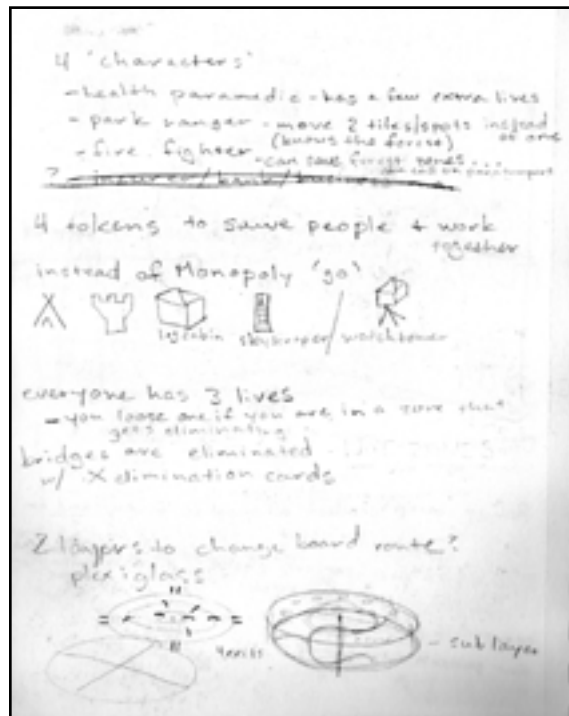 4 'characters'
- health paramedic - has a few extra lives
- park ranger - move 2 tiles/spots instead of one
(knows the forest)
- fire fighter - can save forest zones...
? insurer/bank/business
4 tokens to save people + work together
instead of Monopoly 'go'
logcabin skyscraper / watchtower
everyone has 3 lives
- you loose one if you are in a zone that
gets eliminating
bridges are eliminated
w/ X elimination cards
2 layers to change board route?
plexiglass
- sub layer